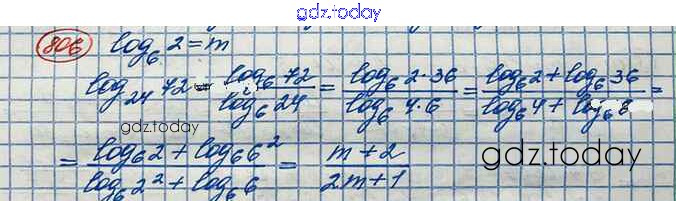 gdz.today
806 log₆ 2 = m
log₂₄ 72 = log₆ 72 / log₆ 24 = log₆ 2·36 / log₆ 4·6 = log₆ 2 + log₆ 36 / log₆ 4 + log₆ 6 =
gdz.today
= log₆ 2 + log₆ 6² / log₆ 2² + log₆ 6 = m + 2 / 2m + 1
gdz.today